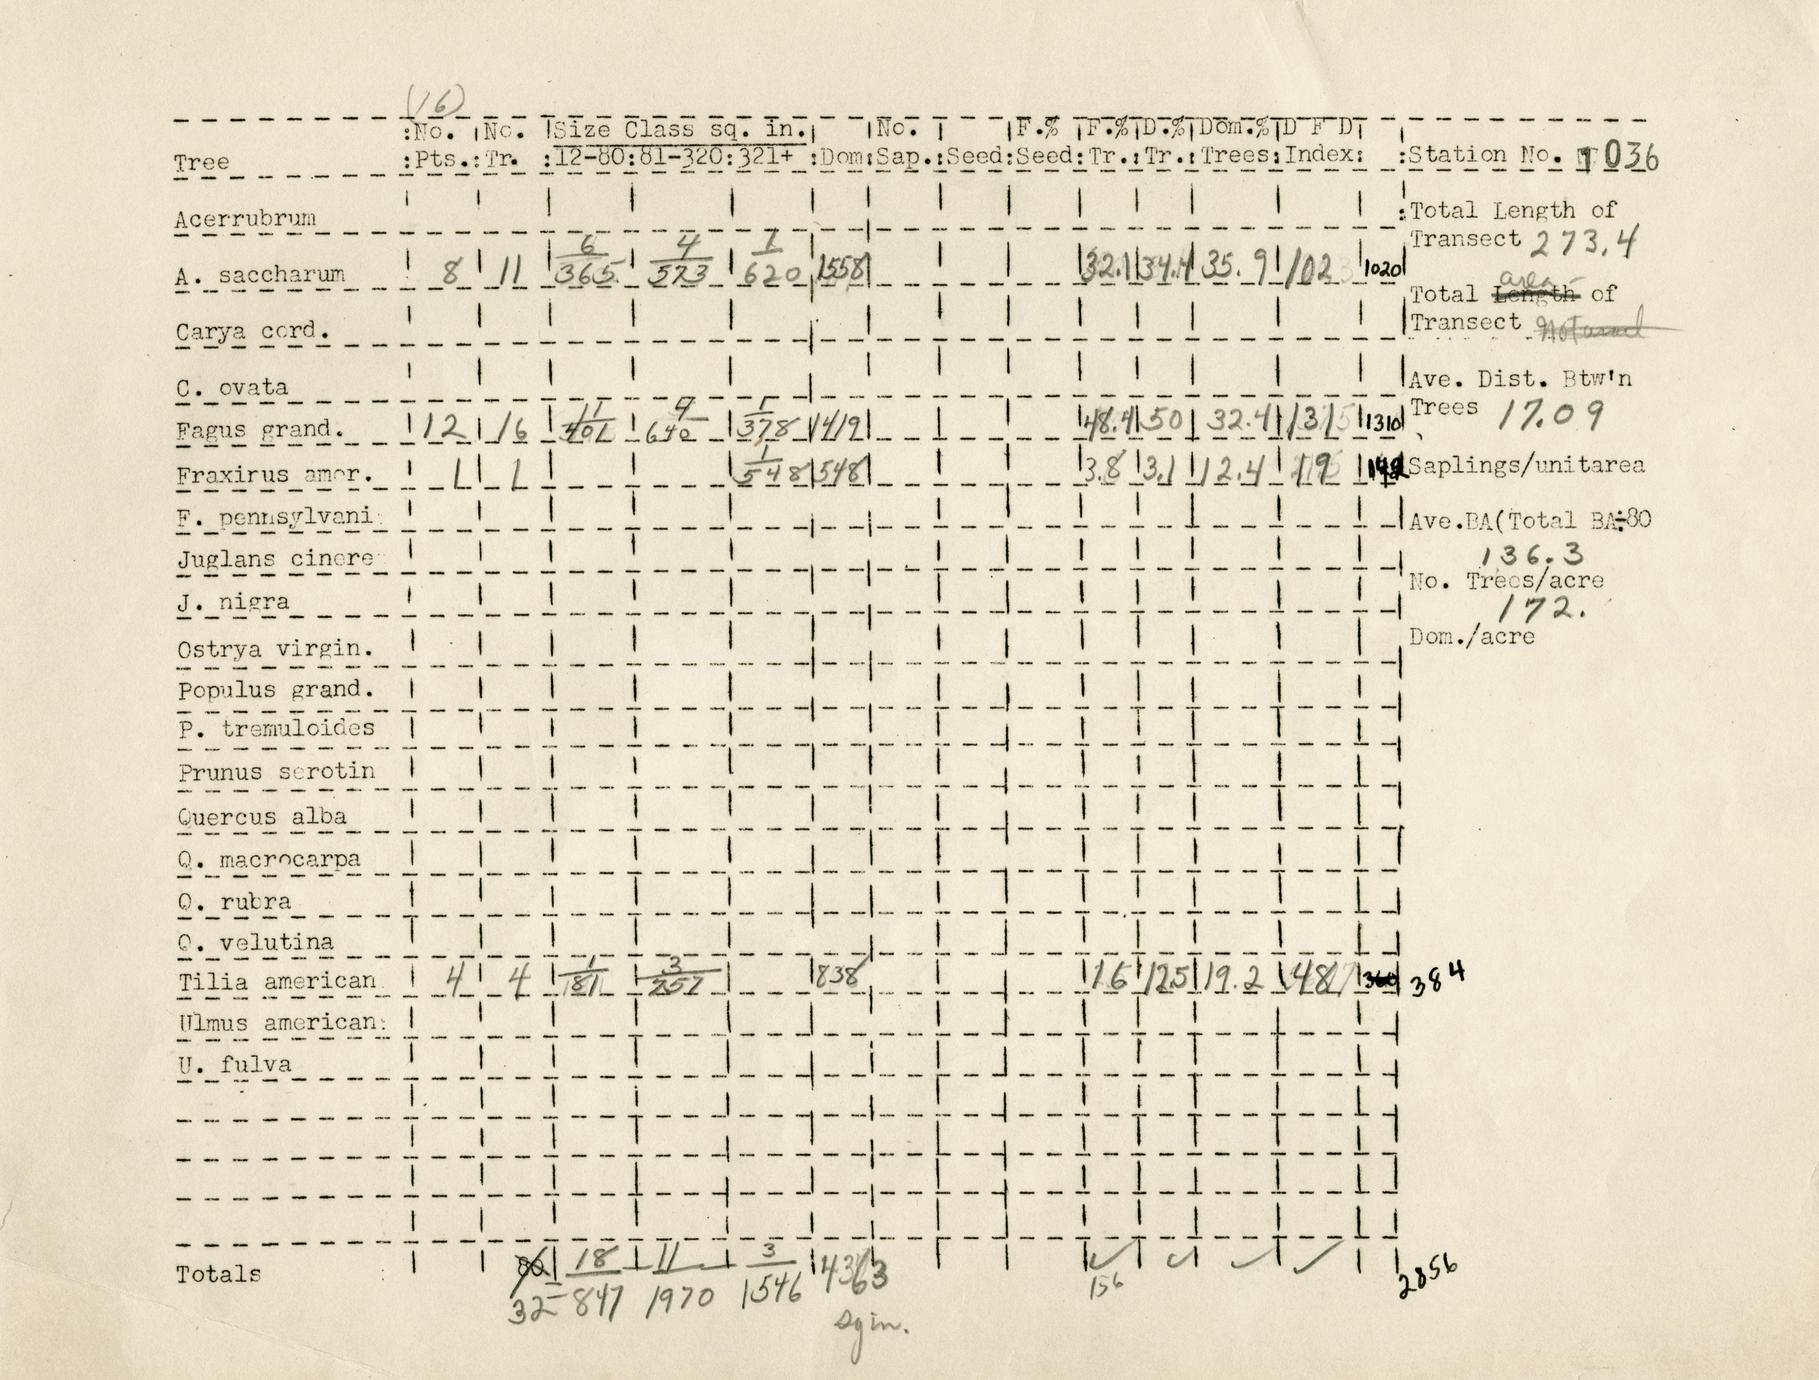 (16)
No. No. Size Class sq. in. No. F.% F.% D.% Dom.% D F D
Tree Pts. Tr. 12-80 81-320 321+ Dom Sap. Seed Seed Tr. Tr. Trees Index Station No. 1036
Acerrubrum
Total Length of
Transect 273.4
6 4 1
A. saccharum 8 11 365 573 620 1558 32.1 34.4 35.9 102 1020
area
Total Length of
Transect Not used
Carya cord.
C. ovata
Ave. Dist. Btw'n
Trees 17.09
11 1
Fagus grand. 12 16 401 640 378 1419 48.4 50 32.4 131 1310
1
Fraxirus amer. 1 1 548 548 3.8 3.1 12.4 19
Saplings/unitarea
F. pennsylvani
Ave.BA(Total BA÷80
136.3
Juglans cinere
No. Trees/acre
172.
J. nigra
Dom./acre
Ostrya virgin.
Populus grand.
P. tremuloides
Prunus serotin
Quercus alba
Q. macrocarpa
Q. rubra
Q. velutina
1 3
Tilia american 4 4 81 757 838 16 125 19.2 48 360 384
Ulmus american:
U. fulva
80 18 11 3
Totals 32 847 1970 1546 4363 156 2856
sq in.